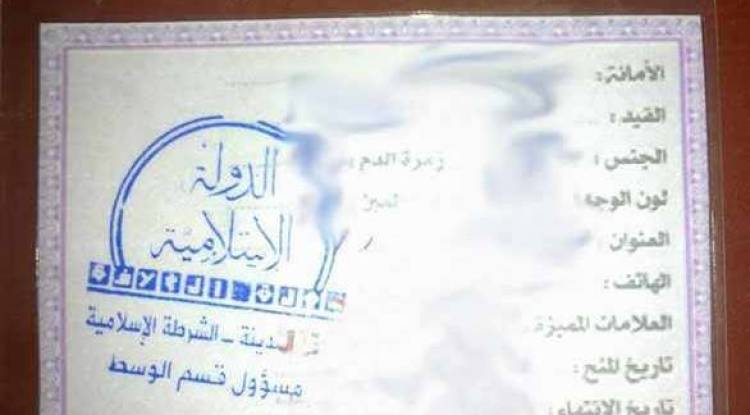 الأمانة:
القيد:
الجنس: زمرة الدم:
لون الوجه
العنوان:
الهاتف:
العلامات المميزة:
تاريخ المنح:
تاريخ الانتهاء:
الدولة
الإسلامية
المدينة - الشرطة الإسلامية
مسؤول قسم الوسط